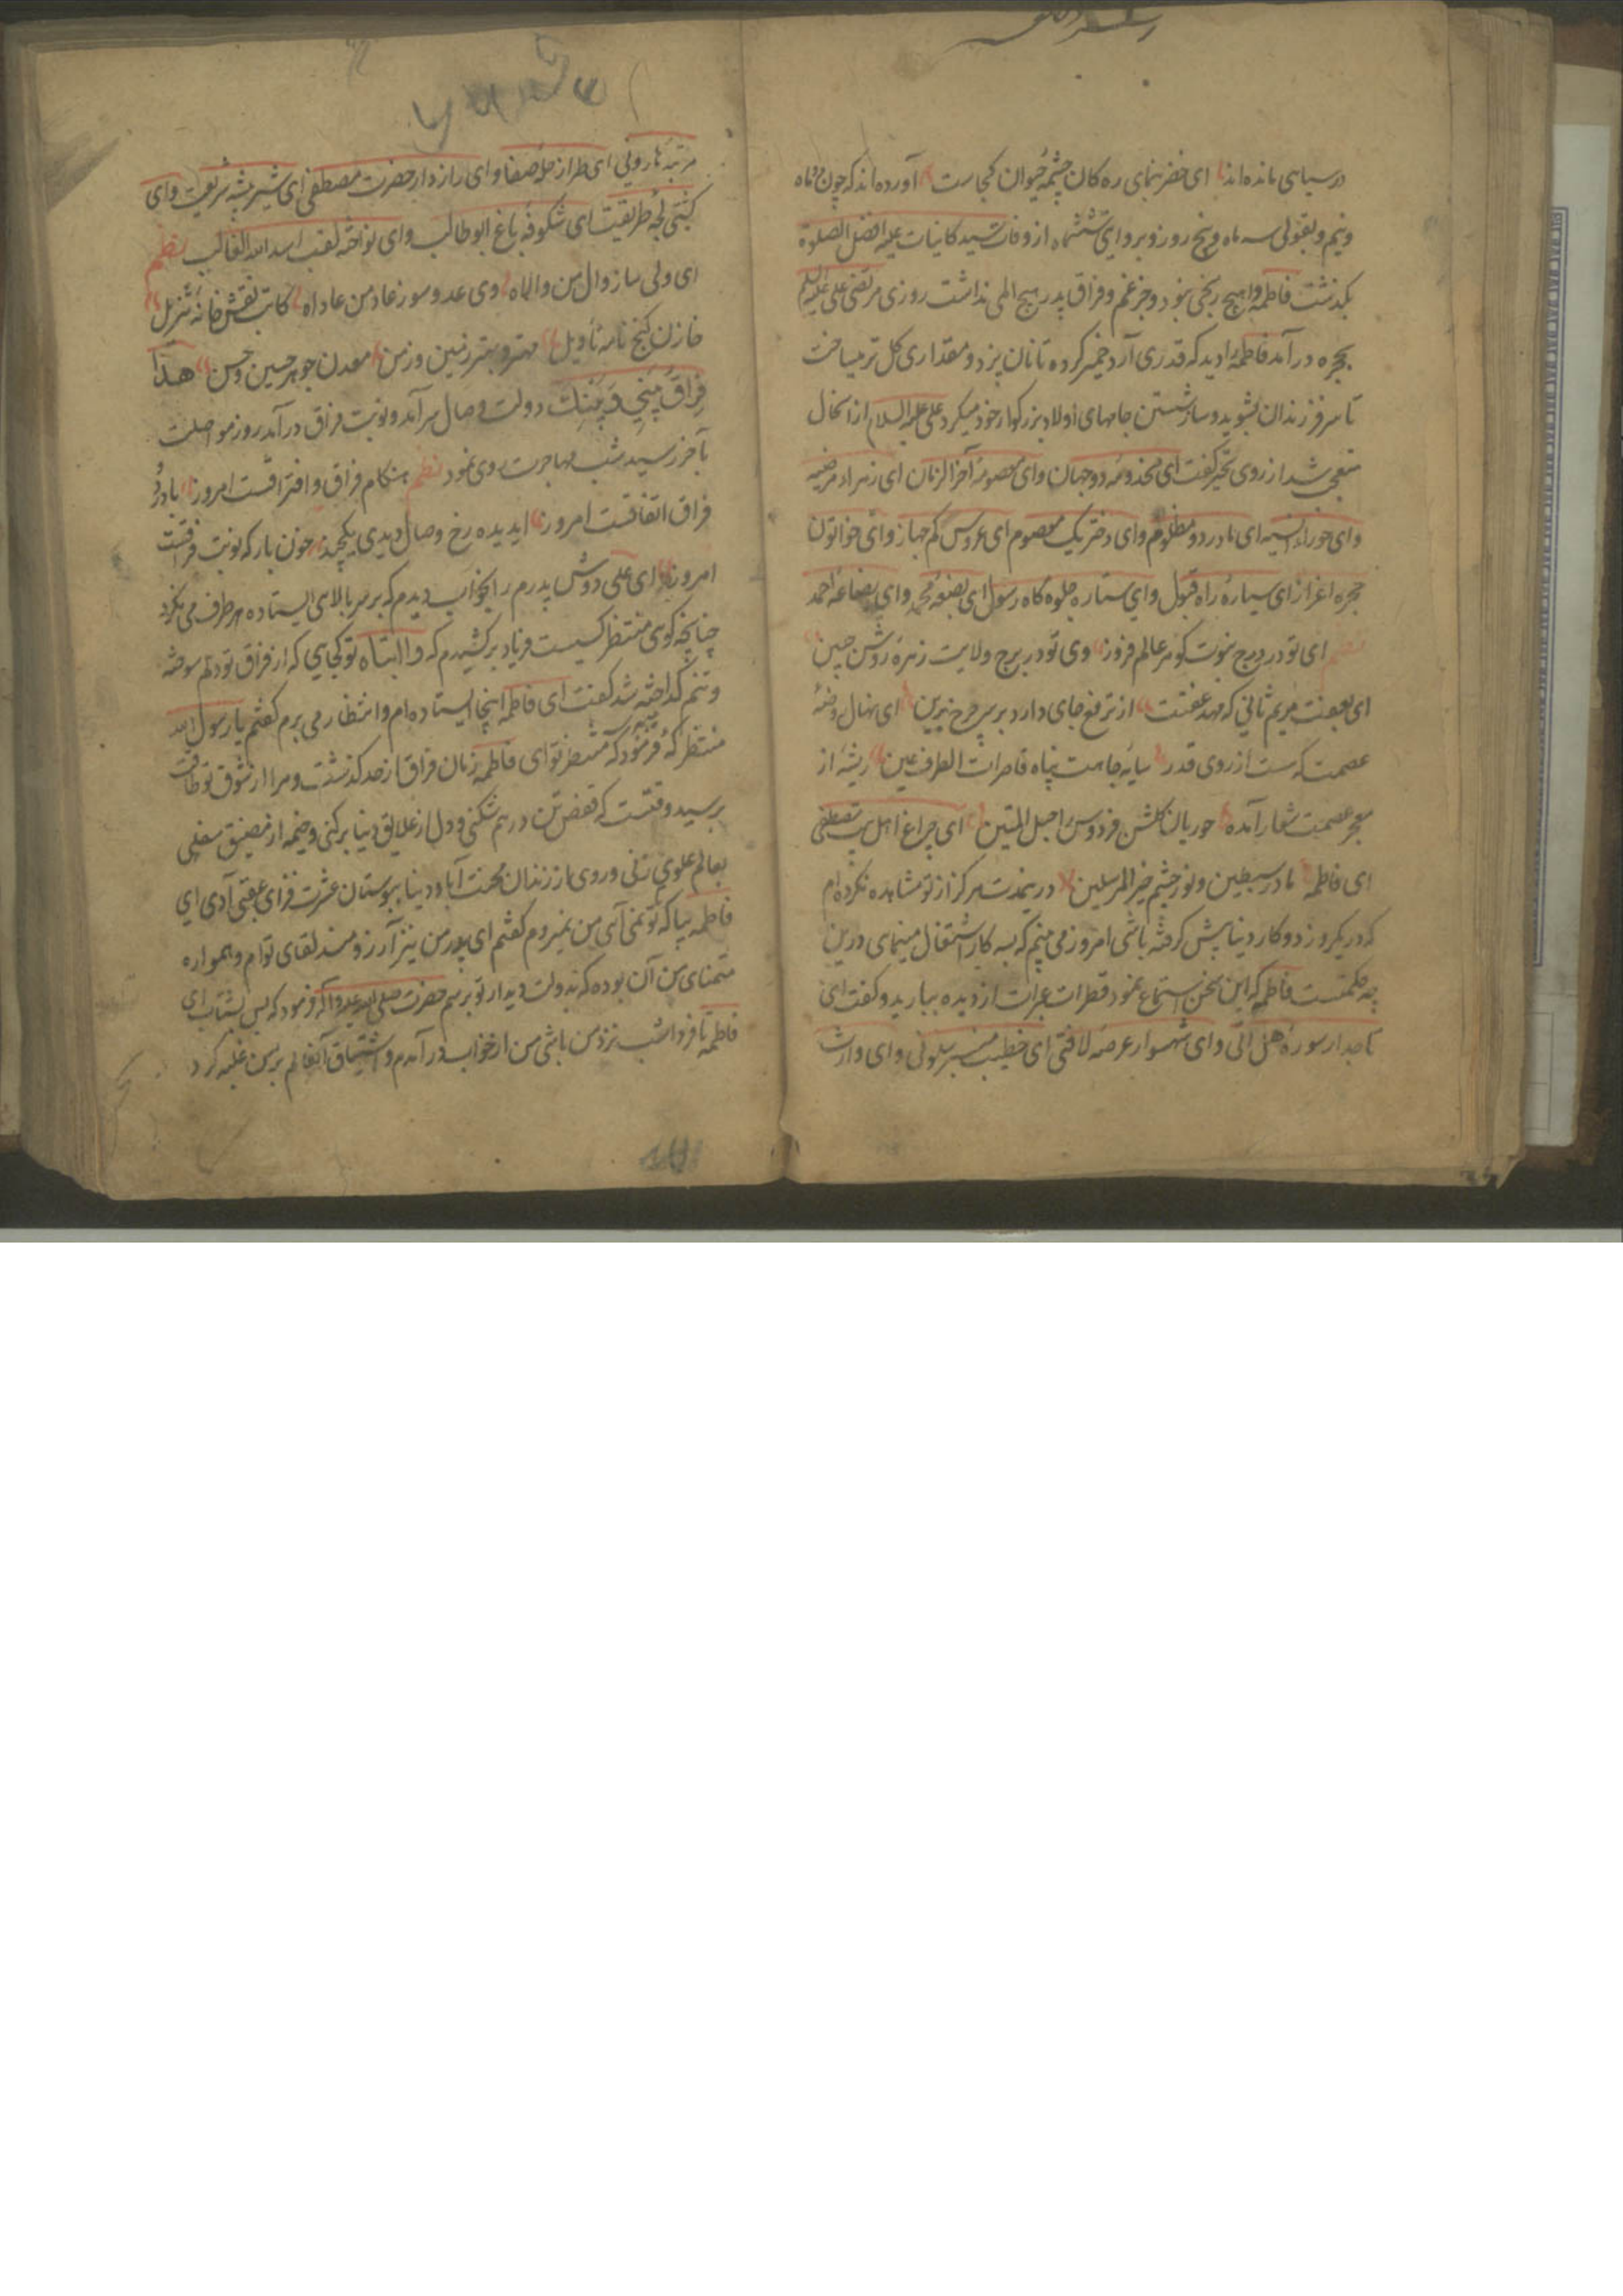 در سیاهی مانده‌اند ای خضر بنمای ره کان چشمه حیوان کجاست آورده‌اند که چون دو ماه
ونیم و بقولی سه ماه و پنج روز و بروایتی ششماه از وفات سید کاینات علیه افضل الصلوة
بکذشت فاطمه را هیچ رنجی نبود و جز غم و فراق پدر هیچ المی نداشت روزی مرتضی علی علیه السلم
بحجره درآمد فاطمه را دید که قدری آرد خمیر کرده تا نان پزد و مقداری کل تر میساخت
تا سر فرزندان بشوید و ساز شستن جامهای اولاد بزرکوار خود میکرد علی علیه السلام از آنحال
متعجب شد از روی تحیر کفت ای مخدومه دو جهان وای معصومه آخر الزمان ای زهراء مرضیه
وای حوراء انسیه ای مادر دو مظلوم وای دختر یک معصوم ای عروس کم جهاز وای خواتون
حجره اعزاز ای سیاره راه قبول وای ستاره جلوه کاه رسول ای بضعه محمد وای بضاعه احمد
نظم ای تو در درج نبوت کوهر عالم فروز وی تو در برج ولایت زهره روشن جبین
ای بعصمت مریم ثانی که مهد عفتت از ترفع جای دارد بر سر چرخ برین ای نهال روضه
عصمت که هست از روی قدر سایه جاهت پناه قاصرات الطرف عین ریشه از
معجر عصمت شعار آمده حوریان کلشن فردوس را حبل المتین ای چراغ اهل بیت مصطفی
ای فاطمه مادر سبطین و نور چشم خیر المرسلین درینمدت هرکز از تو مشاهده نکرده‌ام
که در یکروز دو کار دنیا پیش کرفته باشی امروز می بینم که بسه کار اشتغال مینمای درین
چه حکمتست فاطمه که این سخن استماع نمود قطرات عبرات از دیده ببارید و کفت ای
تاجدار سوره هل اتی وای شهسوار عرصه لافتی ای خطیب منبر سلونی وای وارث
مرتبه هارونی ای طراز حله صفا وای رازدار حضرت مصطفی ای شیر بیشه شریعت وای
کشتی لجه طریقت ای شکوفه باغ ابوطالب وای نواخته لقب اسد الله الغالب نظم
ای ولی ساز وال من والاه وی عدو سوز عاد من عاداه کاتب نقش خانه تنزیل
خازن کنج نامه تأویل مهتر و بهتر زمین و زمن معدن جوهر حسین و حسن هذا
فراق بینی و بینک دولت وصال سرآمد و نوبت فراق درآمد روز مواصلت
بآخر رسید شب مهاجرت روی نمود نظم هنکام فراق و افتراقست امروز با درد
فراق اتفاقست امروز ایدیده رخ وصال دیدی یکچند خون بار که نوبت فراقست
امروز ای علی دوش پدرم را بخواب دیدم که بر سر بالای ایستاده هر طرف می نکرد
چنانچه کوی منتظر کسیست فریاد برکشیدم که وا ابتاه تو کجایی که از فراق تو دلم سوخته
و تنم کداخته شد کفت ای فاطمه اینجا ایستاده‌ام و انتظار می برم کفتم یا رسول الله
منتظر که فرمود که منتظر تو ای فاطمه زمان فراق از حد کذشت و مرا از شوق تو طاقت
برسید وقتست که قفص تن در هم شکنی و دل از علایق دنیا برکنی و خیمه از مضیق سفلی
بعالم علوی زنی و روی از زندان محنت آباد دنیا ببوستان عشرت فزای عقبی آری ای
فاطمه بیا که تو نمی آیی من نمیروم کفتم ای پدر من نیز آرزومند لقای توام و همواره
متمنای من آن بوده که بدولت دیدار تو برسم حضرت صلی الله علیه وآله فرمود که پس بشتاب ای
فاطمه تا فردا شب نزد من باشی من از خواب درآمدم و اشتیاق آنعالم بر من غلبه کرد